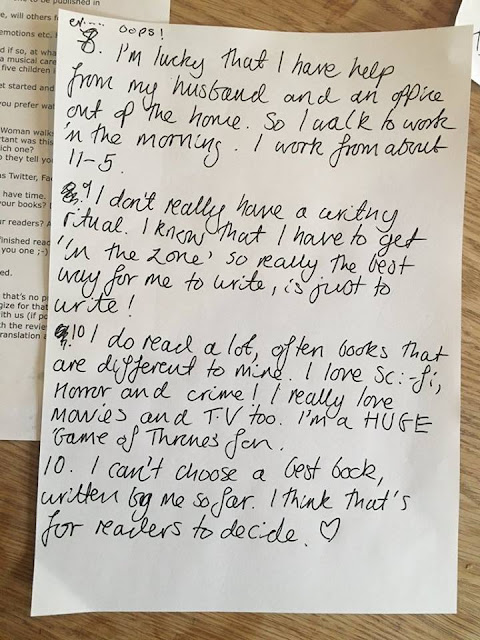 to be published in
, will others f
emotions etc.
d if so, at wha
a musical care
five children i
get started and
you prefer wat
Woman walks
rtant was this
ich one?
o they tell you
as Twitter, Fac
have time.
your books? (
ur readers? A
finished read
you one ;-)
ed.
that's no p
gize for that
with us (if po
with the revie
translation a
oops!
8. I'm lucky that I have help
from my husband and an office
out of the home. So I walk to work
in the morning. I work from about
11-5.
9 I don't really have a writing
ritual. I know that I have to get
'in the zone' so really the best
way for me to write, is just to
write!
10 I do read a lot, often books that
are different to mine. I love Sci-fi,
Horror and crime! I really love
movies and T.V too. I'm a HUGE
Game of Thrones fan.
10. I can't choose a best book,
written by me so far. I think that's
for readers to decide. ♡